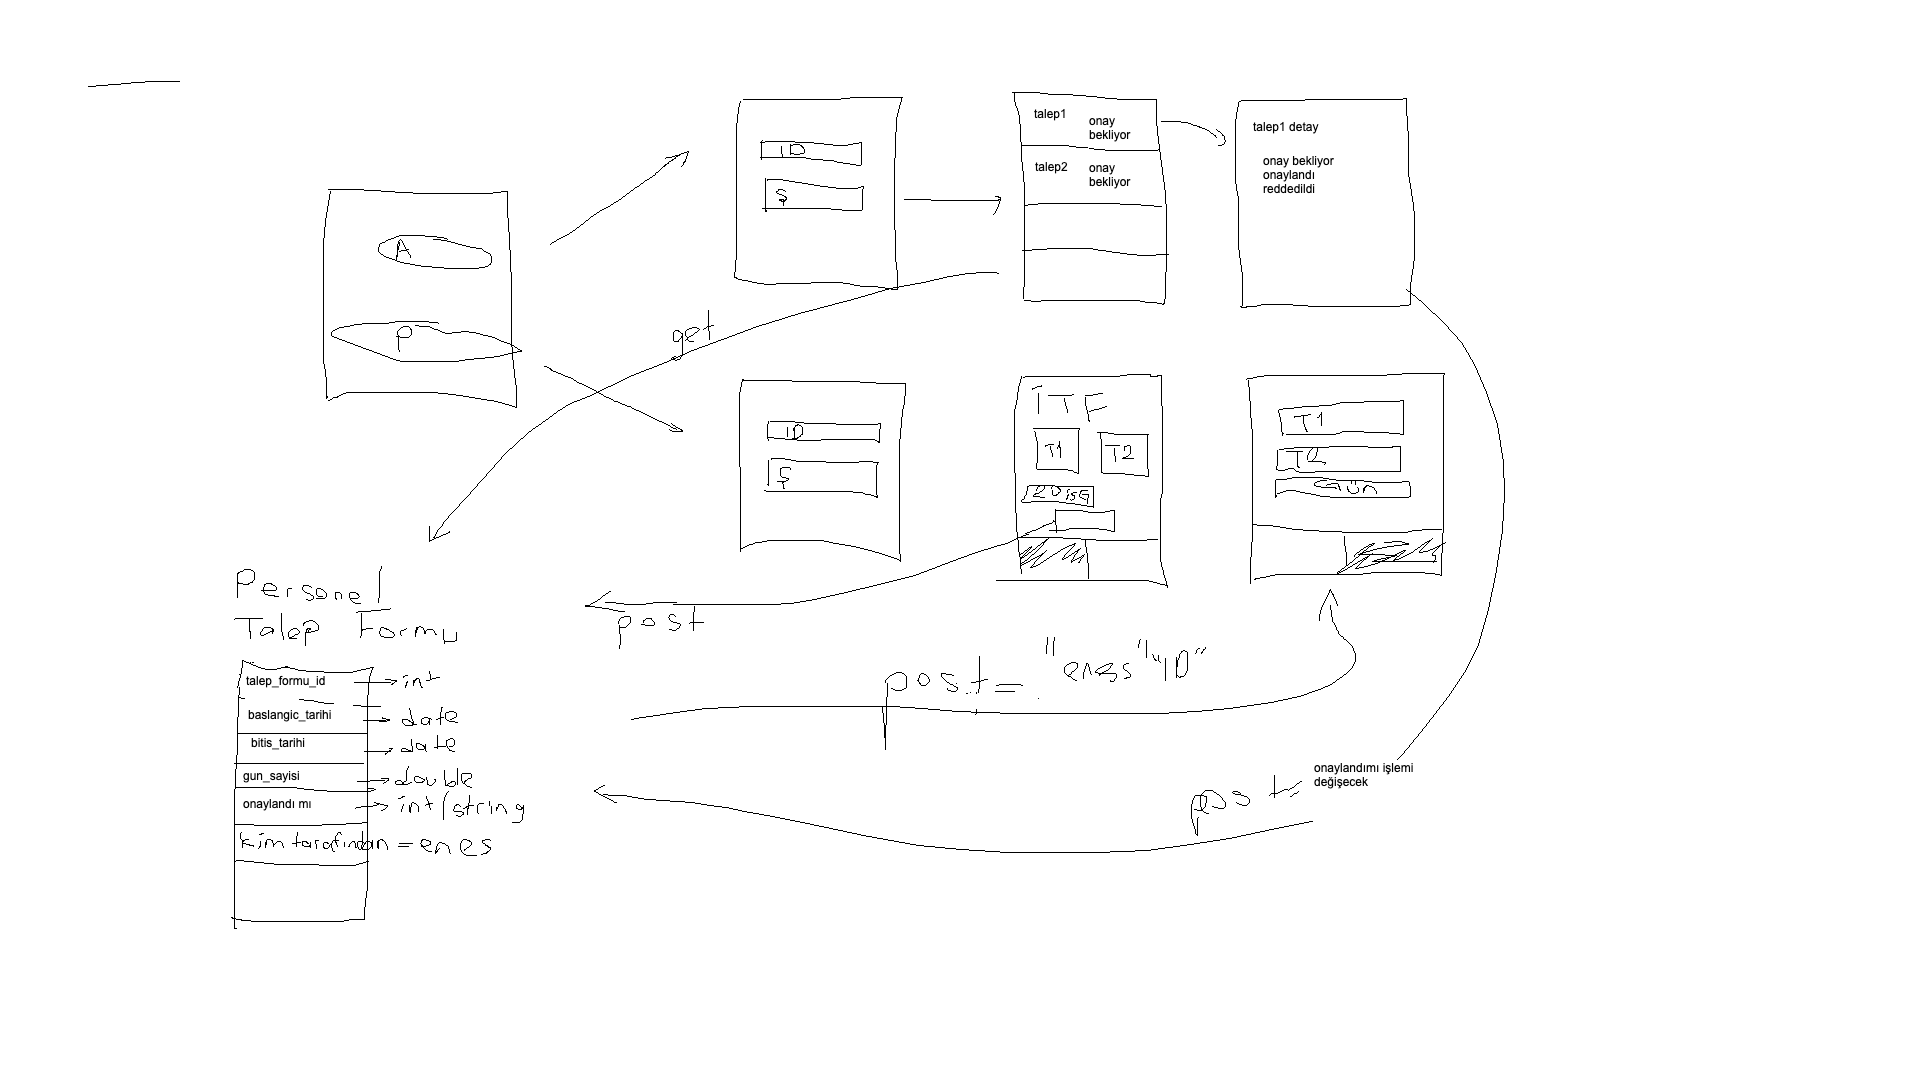 A
P
ID
Ş
talep1
onay
bekliyor
talep2
onay
bekliyor
talep1 detay
onay bekliyor
onaylandı
reddedildi
get
ID
Ş
İTF
T1
T2
T1
T2
Gün
post
Personel
Talep Formu
talep_formu_id
int
baslangic_tarihi
date
bitis_tarihi
date
gun_sayisi
double
onaylandı mı
int/string
kim tarafından = enes
post = "enes" "ID"
post =
onaylandımı işlemi
değişecek